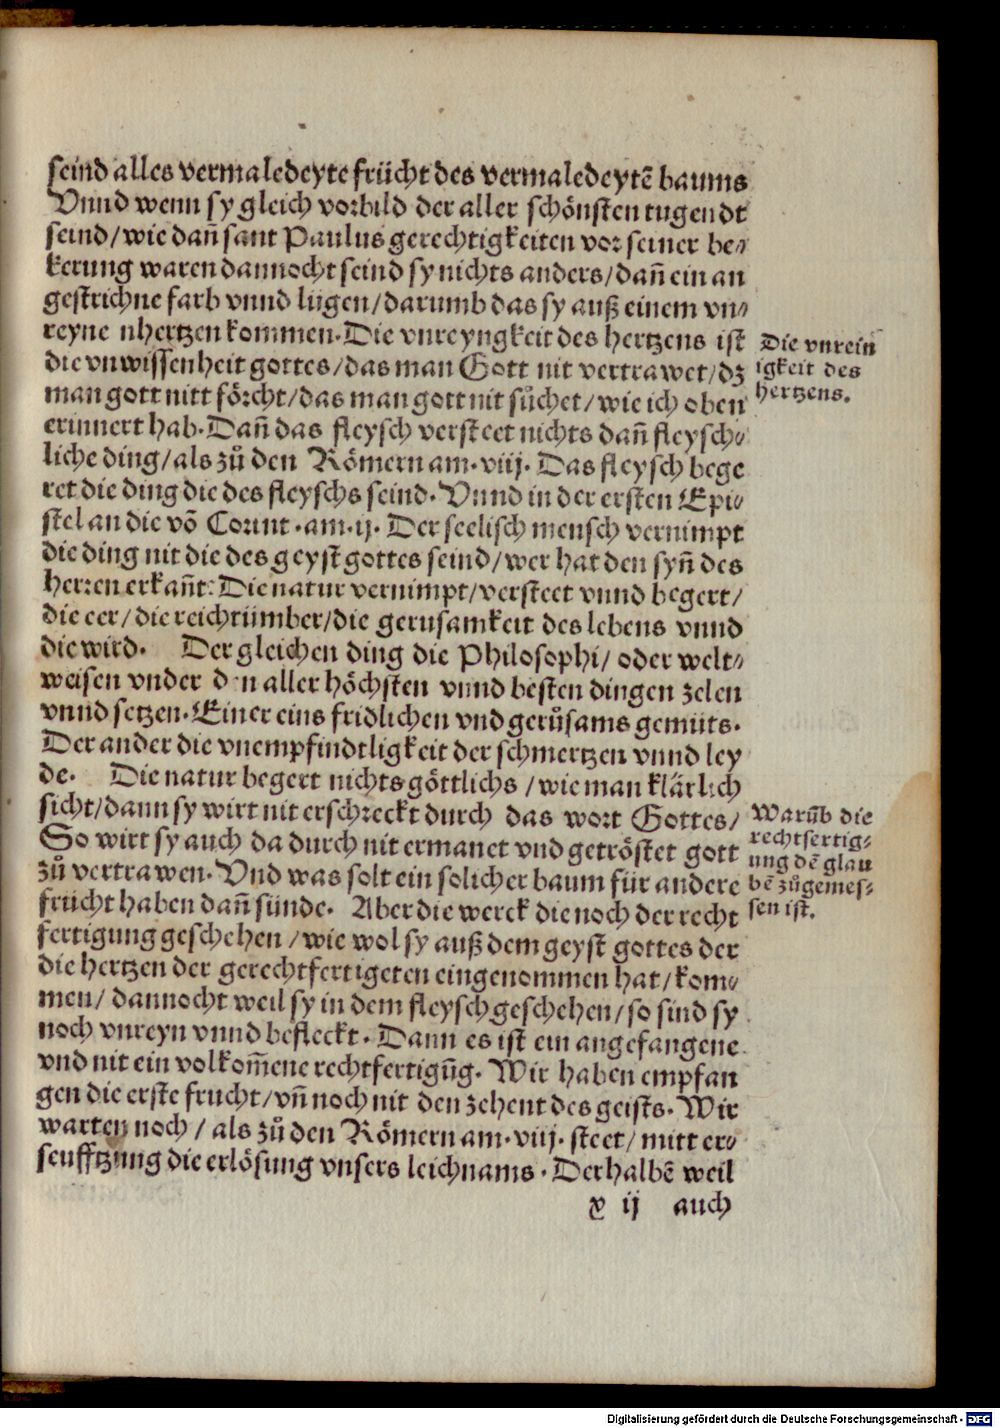 seind alles vermaledeyte frücht des vermaledeytē baums
Vnnd wenn sy gleich vorbild der aller schönsten tugendt
seind/wie dañ sant Paulus gerechtigkeiten vor seiner be-
kerung waren dannocht seind sy nichts anders/dañ ein an
gestrichne farb vnnd lügen/darumb das sy auß einem vn-
reyne nhertzen kommen. Die vnreyngkeit des hertzens ist
die vnwissenheit gottes/das man Gott nit vertrawet/dz
man gott nitt förcht/das man gott nit sůchet/wie ich oben
erinnert hab. Dañ das fleysch versteet nichts dañ fleysch-
liche ding/als zů den Römern am. viij. Das fleysch bege
ret die ding die des fleyschs seind. Vnnd in der ersten Epi-
stel an die võ Corint. am. ij. Der seelisch mensch vernimpt
die ding nit die des geyst gottes seind/wer hat den syñ des
herren erkañt: Die natur vernimpt/versteet vnnd begert/
die eer/die reichtümber/die gerusamkeit des lebens vnnd
die wird. Der gleichen ding die Philosophi/oder welt-
weisen vnder den aller höchsten vnnd besten dingen zelen
vnnd setzen. Einer eins fridlichen vnd gerůsams gemüts.
Der ander die vnempfindtligkeit der schmertzen vnnd ley
de. Die natur begert nichts göttlichs/wie man klärlich
sicht/dann sy wirt nit erschreckt durch das wort Gottes/
So wirt sy auch da durch nit ermanet vnd getröstet gott
zů vertrawen. Vnd was solt ein solicher baum für andere
frücht haben dañ sünde. Aber die werck die noch der recht
fertigung geschehen/wie wol sy auß dem geyst gottes der
die hertzen der gerechtfertigeten eingenommen hat/kom-
men/dannocht weil sy in dem fleysch geschehen/so sind sy
noch vnreyn vnnd befleckt. Dann es ist ein angefangene
vnd nit ein volkom̄ene rechtfertigūg. Wir haben empfan
gen die erste frucht/vñ noch nit den zehent des geists. Wir
warten noch/als zů den Römern am. viij. steet/mitt er-
seufftzung die erlösung vnsers leichnams. Derhalbē weil
x ij auch
Die vnrein
igkeit des
hertzens.
Warūb die
rechtfertig-
ung dē glau
bē zůgemes-
sen ist.
Digitalisierung gefördert durch die Deutsche Forschungsgemeinschaft - DFG